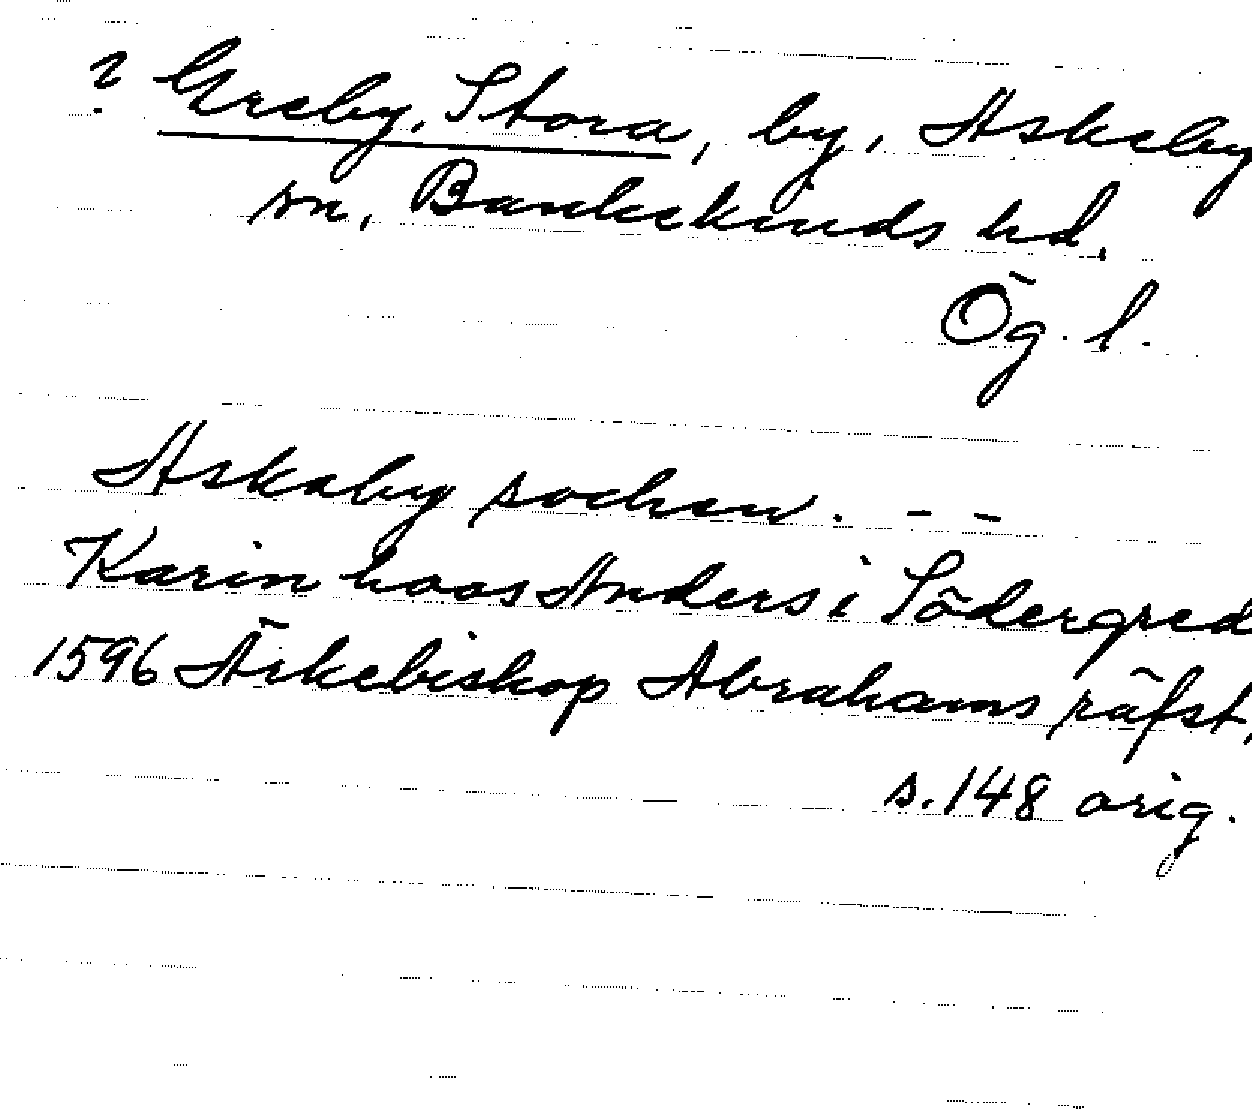 ? Greby, Stora, by, Askeby
sn, Bankekinds hd.
Ög. l.
Askaby sochen. - -
Karin hoos Anders i Södergred
1596 Ärkebiskop Abrahams räfst,
s. 148 orig.